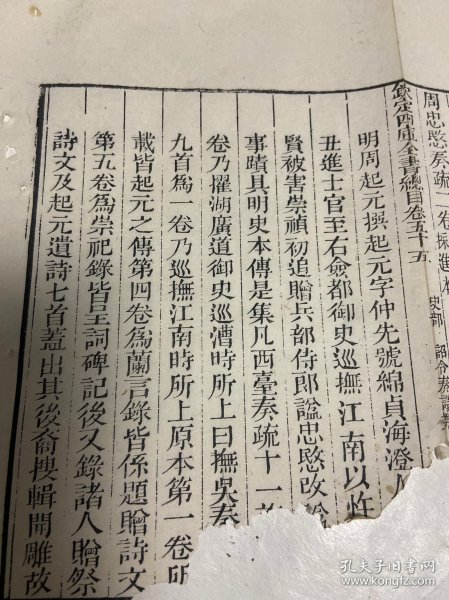 周忠愍奏疏二卷
史部 詔令奏議
欽定四庫全書總目卷五十五
明周起元撰起元字仲先號緜貞海澄人
丑進士官至右僉都御史巡撫江南以忤
賢被害崇禎初追贈兵部侍郎諡忠愍改
事蹟具明史本傳是集凡西臺奏疏十一
卷乃擢湖廣道御史巡漕時所上曰撫吳奏
九首爲一卷乃巡撫江南時所上原本第一卷
載皆起元之傳第四卷爲蘭言錄皆係題贈詩文
第五卷爲崇祀錄皆主詞碑記後又錄諸人贈祭
詩文及起元遺詩七首蓋出其後裔搜輯開雕故
孔夫子旧书网
www.kongfz.com